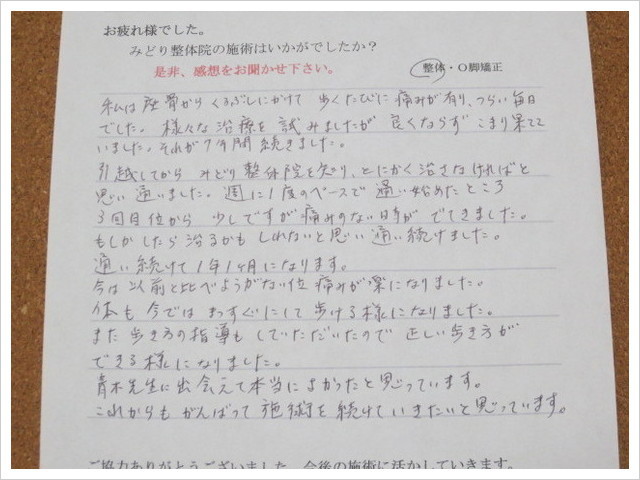 お疲れ様でした。
みどり整体院の施術はいかがでしたか？
是非、感想をお聞かせ下さい。
整体・O脚矯正
私は座骨からくるぶしにかけて 歩くたびに 痛みが有り、つらい毎日
でした。様々な治療を試みましたが 良くならず こまり果てて
いました。それが7年間 続きました。
引越してから みどり整体院を知り、とにかく治さなければと
思い 通いました。週に1度のペースで 通い始めたところ
3回目位から 少しですが痛みのない日が でてきました。
もしかしたら治るかもしれないと思い 通い続けました。
通い続けて1年1ヶ月になります。
今は以前と比べようがない位 痛みが楽になりました。
体も今では まっすぐにして歩ける様になりました。
また歩き方の指導も していただいたので 正しい歩き方が
できる様になりました。
青木先生に出会えて本当によかったと思っています。
これからもがんばって施術を続けていきたいと思っています。
ご協力ありがとうございました。今後の施術に活かしていきます。